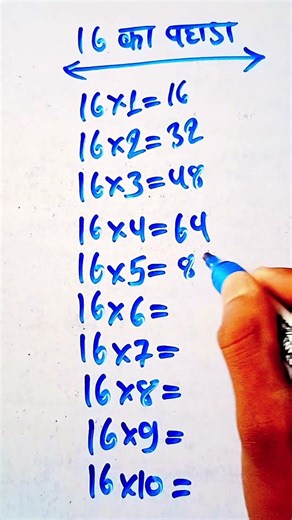 16 का पहाडा
16×1=16
16×2=32
16×3=48
16×4=64
16×5=8
16×6=
16×7=
16×8=
16×9=
16×10=